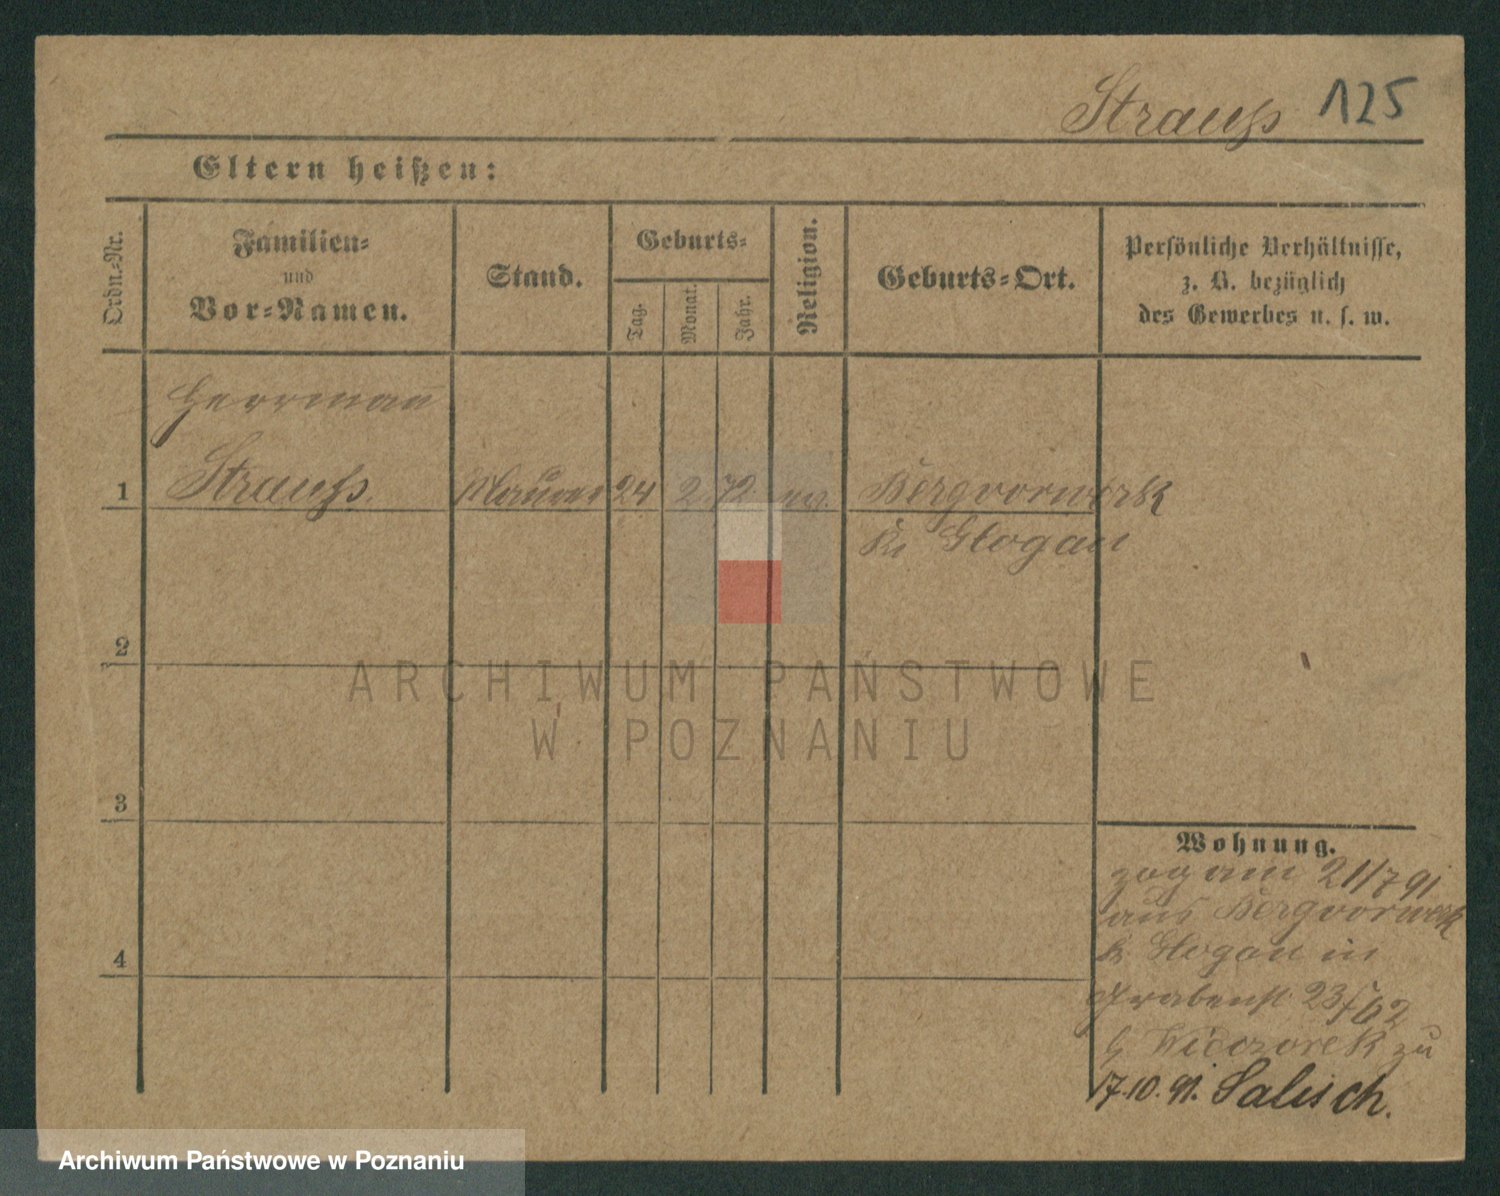 Strauß 125
Eltern heißen:
Ordn.-Nr.
Familien-
und
Vor-Namen.
Stand.
Geburts-
Tag.
Monat.
Jahr.
Religion.
Geburts-Ort.
Persönliche Verhältnisse,
z. B. bezüglich
des Gewerbes u. s. w.
Herrmañ
1 Strauß. Maurer 24 2 72 ev. Bergvorwerk
Kr Glogau
2
3
4
Wohnung.
zog am 21/7 91
aus Bergvorwerk
Kr Glogau in
Grabenst 23
b Wieczorek zu
17.10.91. Salisch.
ARCHIWUM PAŃSTWOWE
W POZNANIU
Archiwum Państwowe w Poznaniu